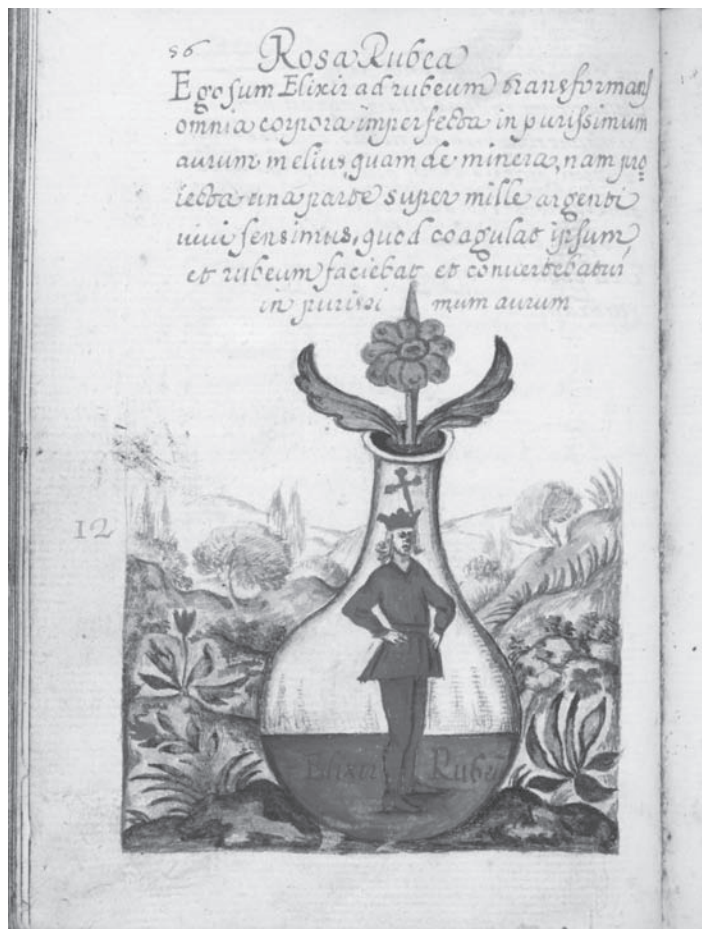 56 Rosa Rubea
Ego sum Elixir ad rubeum transformans
omnia corpora imperfecta in purissimum
aurum melius, quam de minera, nam pro
iecta una parte super mille argenti
vivi sensimus, quod coagulat ipsum,
et rubeum faciebat et convertebatur
in purissi mum aurum
12
Elixir Rubeū